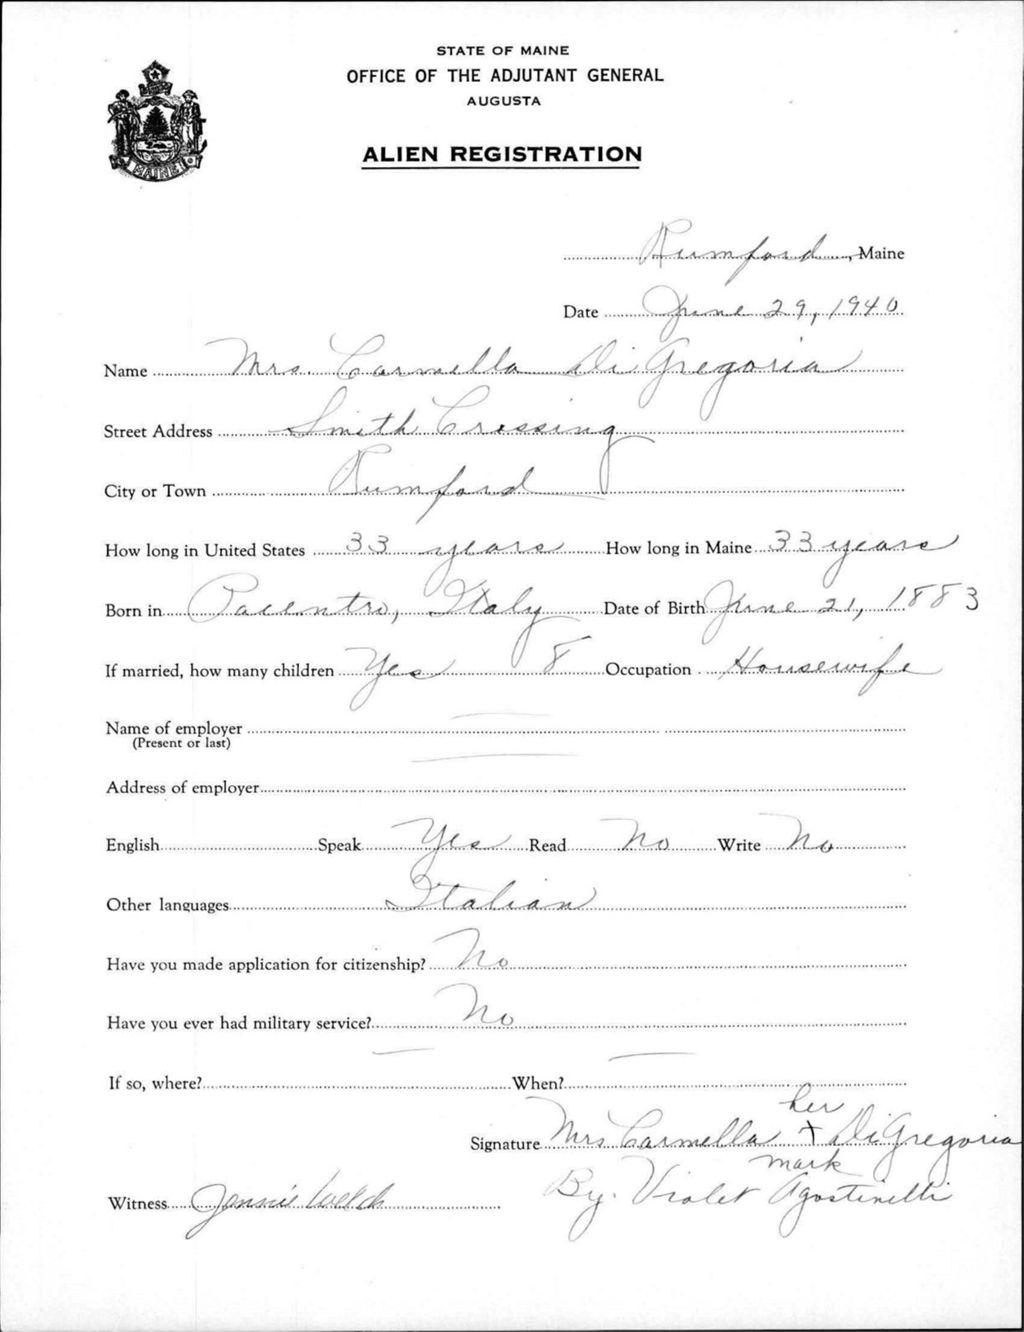 STATE OF MAINE
OFFICE OF THE ADJUTANT GENERAL
AUGUSTA
ALIEN REGISTRATION
MAINE
Rumford, Maine
Date June 29, 1940
Name Mrs. Carmella Di Gregoria
Street Address Smith Crossing
City or Town Rumford
How long in United States 33 years How long in Maine 33 years
Born in Pacentro, Italy Date of Birth June 21, 1883
If married, how many children Yes 8 Occupation Housewife
Name of employer
(Present or last)
Address of employer
English Speak Yes Read No Write No
Other languages Italian
Have you made application for citizenship? No
Have you ever had military service? No
If so, where? When?
her
Signature Mrs Carmella + Di Gregoria
mark
Witness Jennie Welch By. Violet Agostinelli